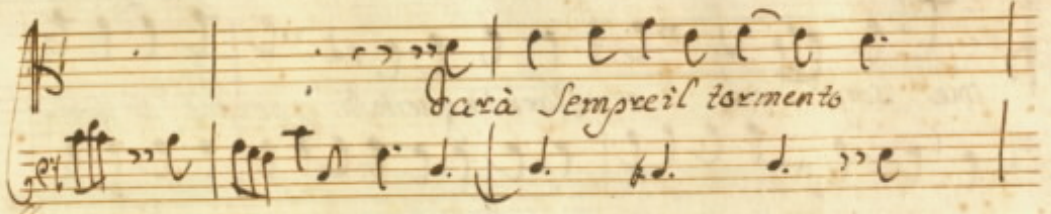 Sarà Sempre il tormento